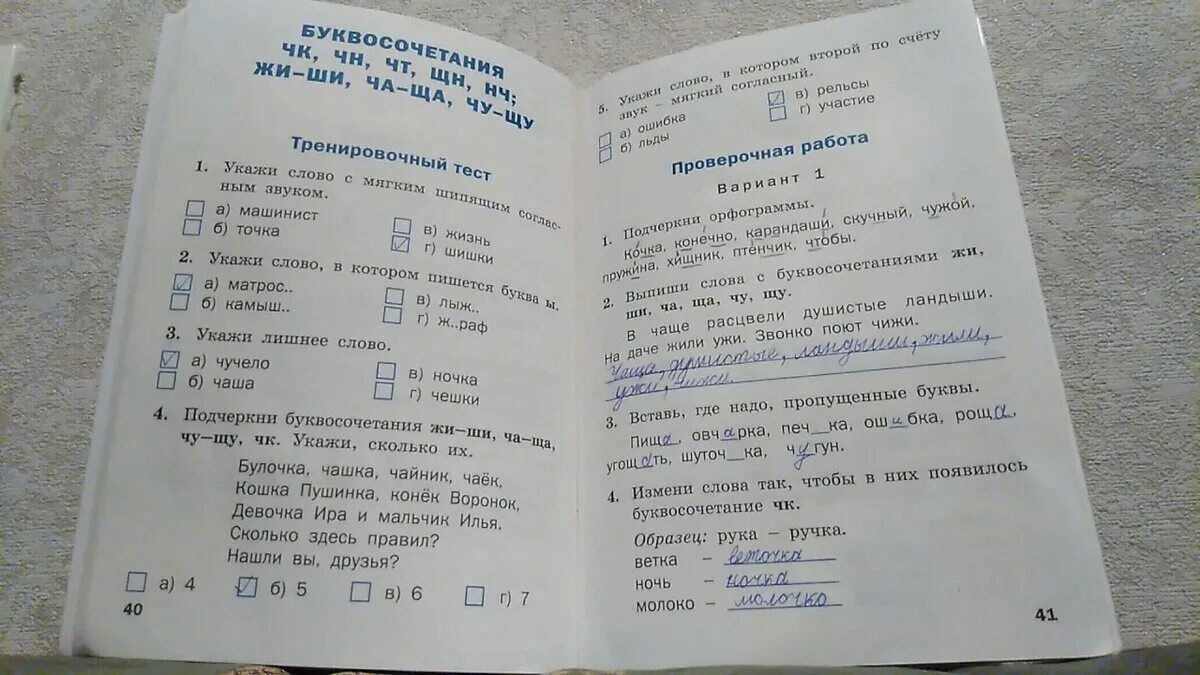 БУКВОСОЧЕТАНИЯ
ЧК, ЧН, ЧТ, ЩН, НЧ;
ЖИ–ШИ, ЧА–ЩА, ЧУ–ЩУ
Тренировочный тест
1. Укажи слово с мягким шипящим соглас-
ным звуком.
а) машинист
в) жизнь
б) точка
г) шишки
2. Укажи слово, в котором пишется буква ы.
а) матрос..
в) лыж..
б) камыш..
г) ж..раф
3. Укажи лишнее слово.
а) чучело
в) ночка
б) чаша
г) чешки
4. Подчеркни буквосочетания жи–ши, ча–ща,
чу–щу, чк. Укажи, сколько их.
Булочка, чашка, чайник, чаёк,
Кошка Пушинка, конёк Воронок,
Девочка Ира и мальчик Илья.
Сколько здесь правил?
Нашли вы, друзья?
а) 4 б) 5 в) 6 г) 7
40
5. Укажи слово, в котором второй по счёту
звук – мягкий согласный.
а) ошибка
в) рельсы
б) льды
г) участие
Проверочная работа
Вариант 1
1. Подчеркни орфограммы.
Кочка, конечно, карандаши, скучный, чужой,
пружина, хищник, птенчик, чтобы.
2. Выпиши слова с буквосочетаниями жи,
ши, ча, ща, чу, щу.
В чаще расцвели душистые ландыши.
На даче жили ужи. Звонко поют чижи.
Чаща, душистые, ландыши, жили,
ужи, чижи.
3. Вставь, где надо, пропущенные буквы.
Пища, овчарка, печ_ка, ошибка, роща,
угощать, шуточ_ка, чугун.
4. Измени слова так, чтобы в них появилось
буквосочетание чк.
Образец: рука – ручка.
ветка – веточка
ночь – ночка
молоко – молочко
41